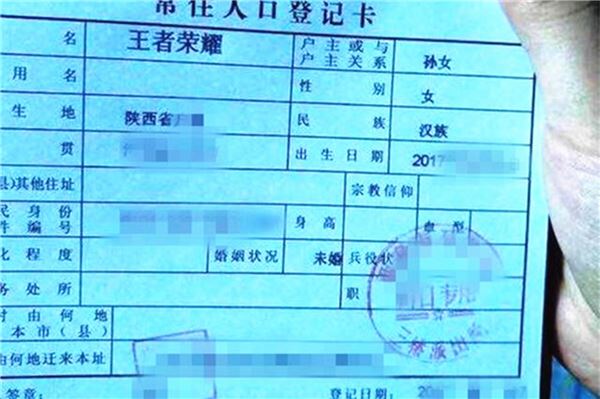 常住人口登记卡
名 王者荣耀 户主或与户主关系 孙女
用名 性别 女
生地 陕西省 民族 汉族
贯 出生日期 2017
县)其他住址 宗教信仰
民身份件编号 身高 血型
化程度 婚姻状况 未婚 兵役状
务处所 职
时由何地本市(县)
由何地迁来本址
签章: 登记日期: 20